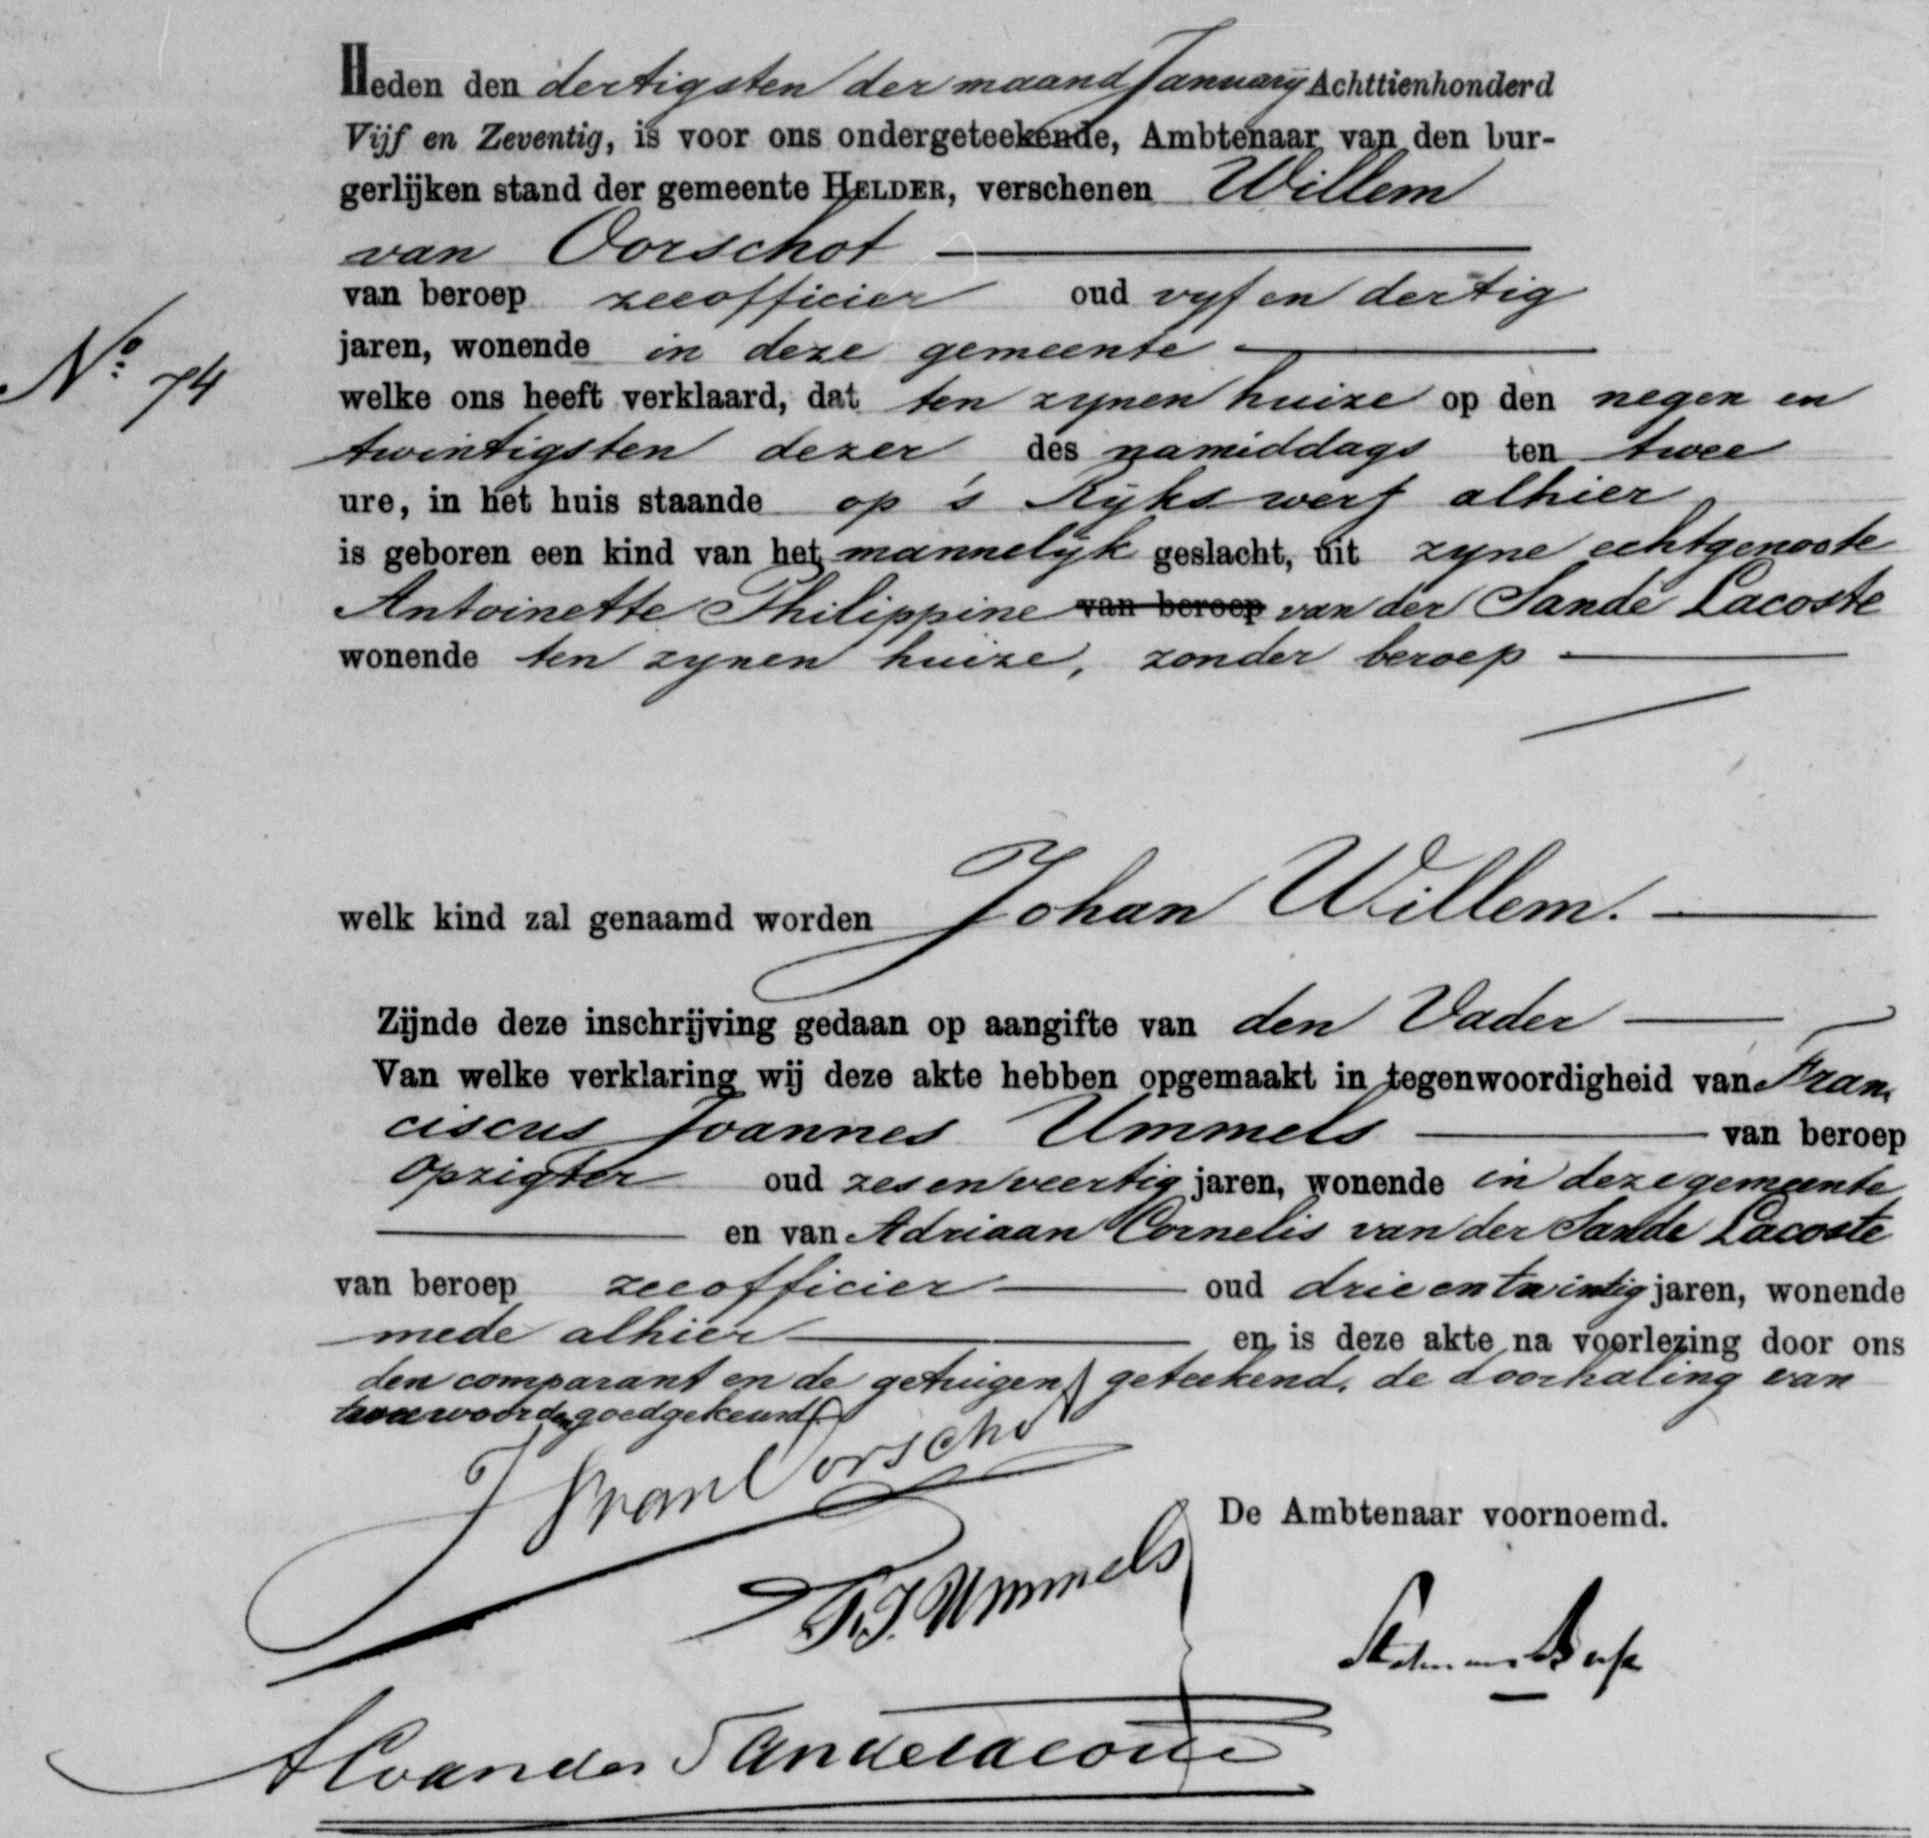 Heden den dertigsten der maand January Achttienhonderd
Vijf en Zeventig, is voor ons ondergeteekende, Ambtenaar van den bur-
gerlijken stand der gemeente HELDER, verschenen Willem
van Oorschot
van beroep zeeofficier oud vyf en dertig
jaren, wonende in deze gemeente
No 74
welke ons heeft verklaard, dat ten zynen huize op den negen en
twintigsten dezer des namiddags ten twee
ure, in het huis staande op 's Ryks werf alhier,
is geboren een kind van het mannelyk geslacht, uit zyne echtgenoote
Antoinette Philippine van beroep van der Sande Lacoste
wonende ten zynen huize, zonder beroep
welk kind zal genaamd worden Johan Willem.
Zijnde deze inschrijving gedaan op aangifte van den Vader
Van welke verklaring wij deze akte hebben opgemaakt in tegenwoordigheid van Fran,
ciscus Joannes Ummels van beroep
Opzigter oud zes en veertig jaren, wonende in deze gemeente
en van Adriaan Cornelis van der Sande Lacoste
van beroep zeeofficier oud drie en twintig jaren, wonende
mede alhier en is deze akte na voorlezing door ons
den comparant en de getuigen geteekend, de doorhaling van
twee woorden goedgekeurd
van Oorschot
F. J. Ummels
De Ambtenaar voornoemd.
A C van der Sande Lacoste